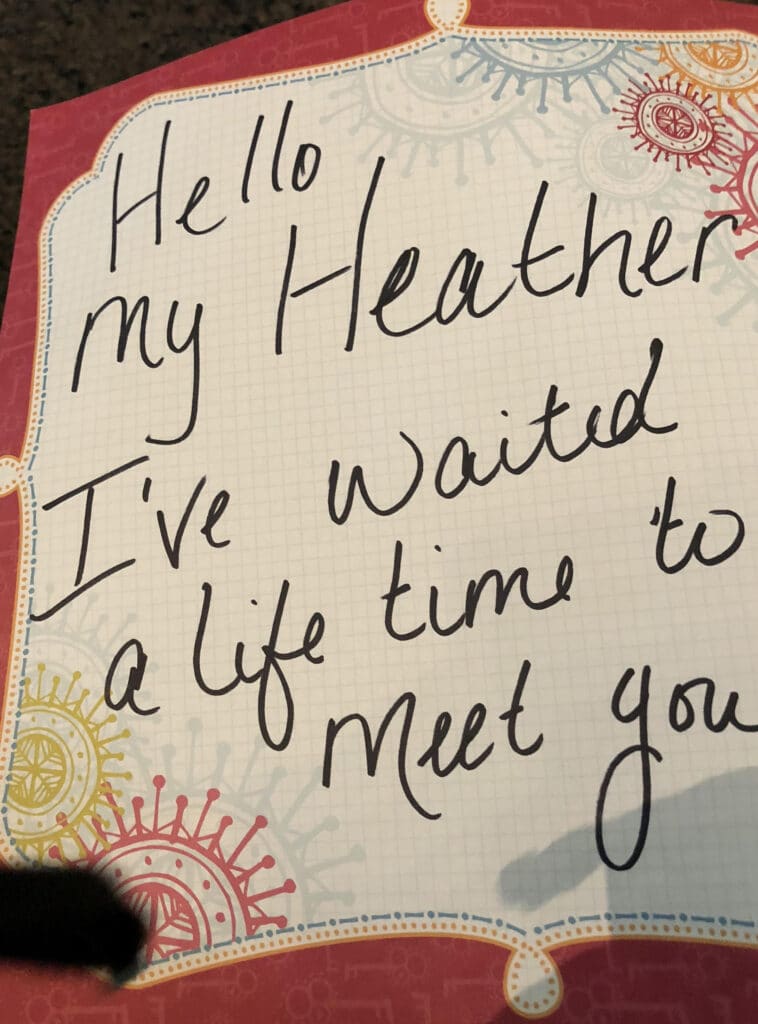 Hello
my Heather
I've waited
a life time to
meet you